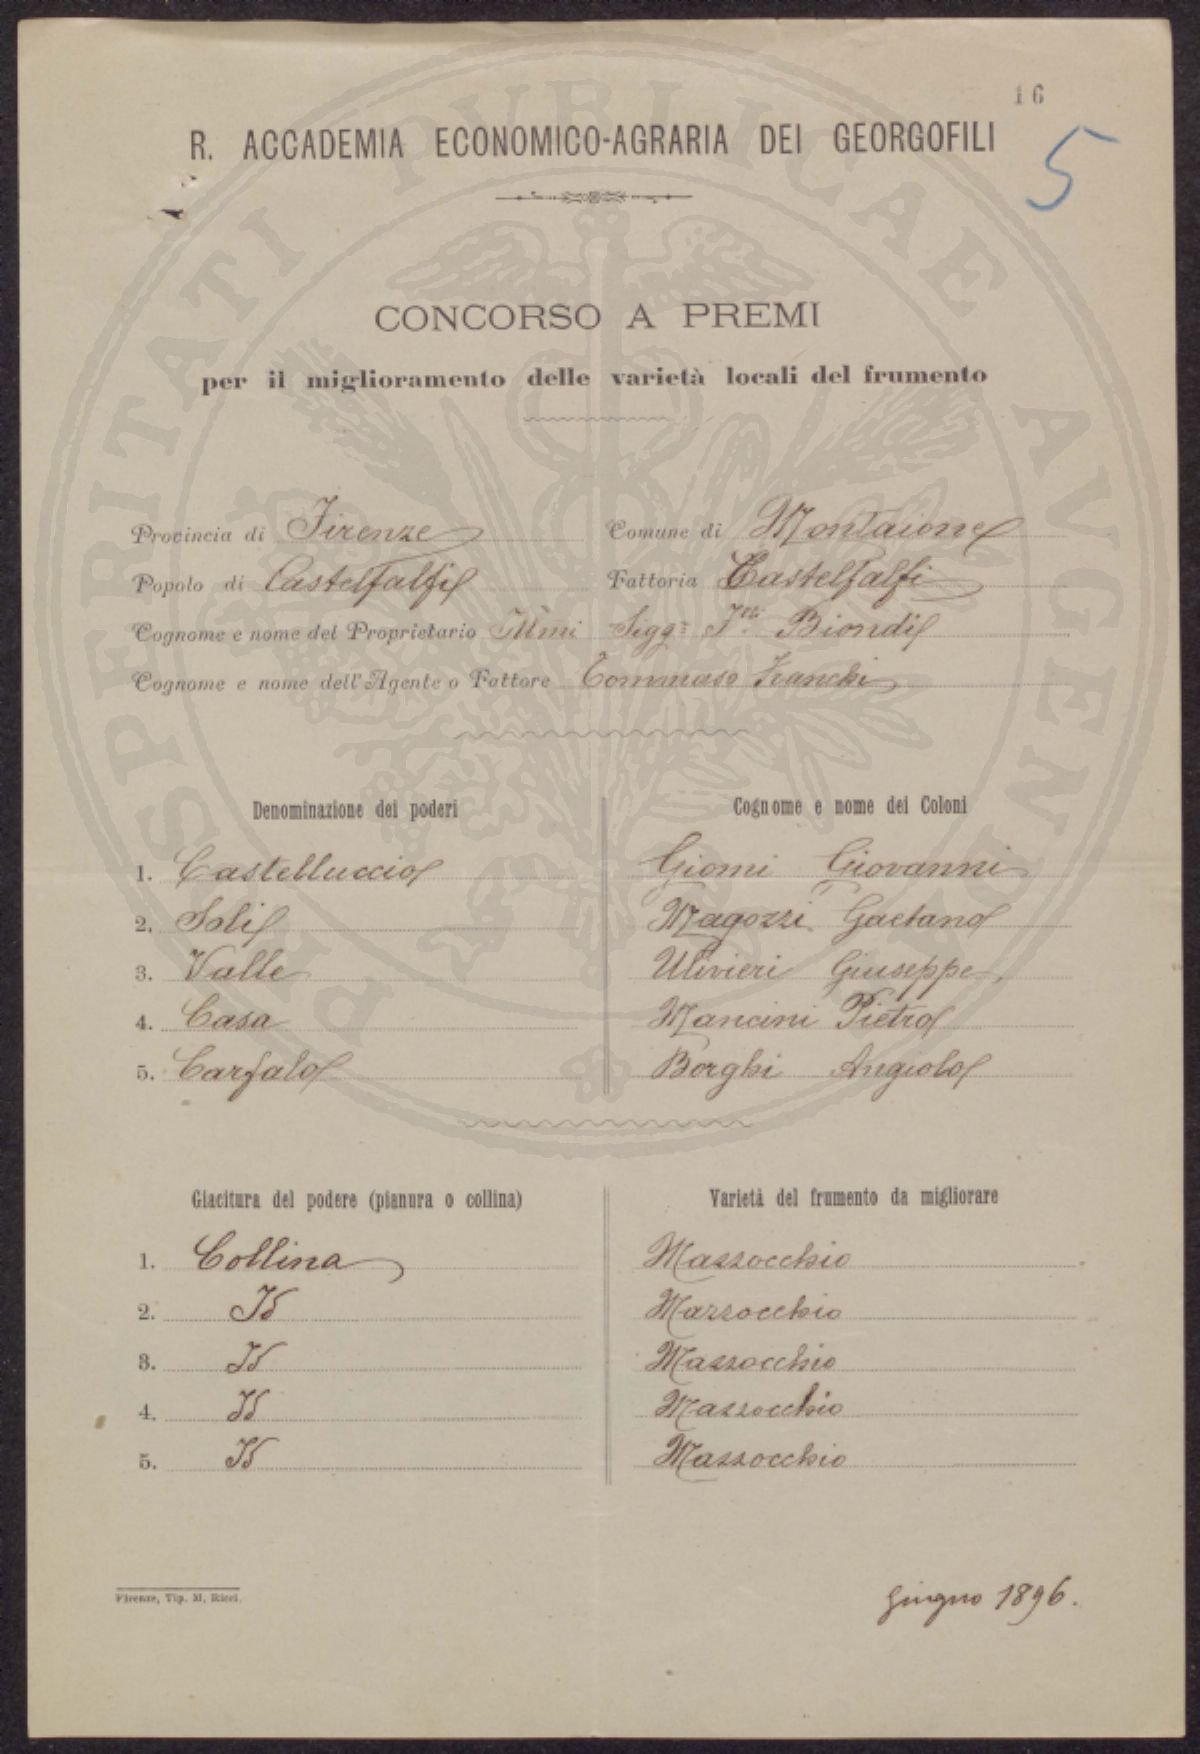 16
R. ACCADEMIA ECONOMICO-AGRARIA DEI GEORGOFILI
5
CONCORSO A PREMI
per il miglioramento delle varietà locali del frumento
Provincia di Firenze Comune di Montaione
Popolo di Castelfalfi Fattoria Castelfalfi
Cognome e nome del Proprietario Ill̃mi Sigg:ri F.lli Biondi
Cognome e nome dell'Agente o Fattore Tommaso Franchi
Denominazione dei poderi Cognome e nome dei Coloni
1. Castelluccio Giomi Giovanni
2. Soli Magozzi Gaetano
3. Valle Ulivieri Giuseppe
4. Casa Mancini Pietro
5. Carfalo Borghi Angiolo
Giacitura del podere (pianura o collina) Varietà del frumento da migliorare
1. Collina Mazzocchio
2. Id Mazzocchio
3. Id Mazzocchio
4. Id Mazzocchio
5. Id Mazzocchio
Firenze, Tip. M. Ricci.
Giugno 1896.
PROSPERITATI PUBLICAE AUGENDAE